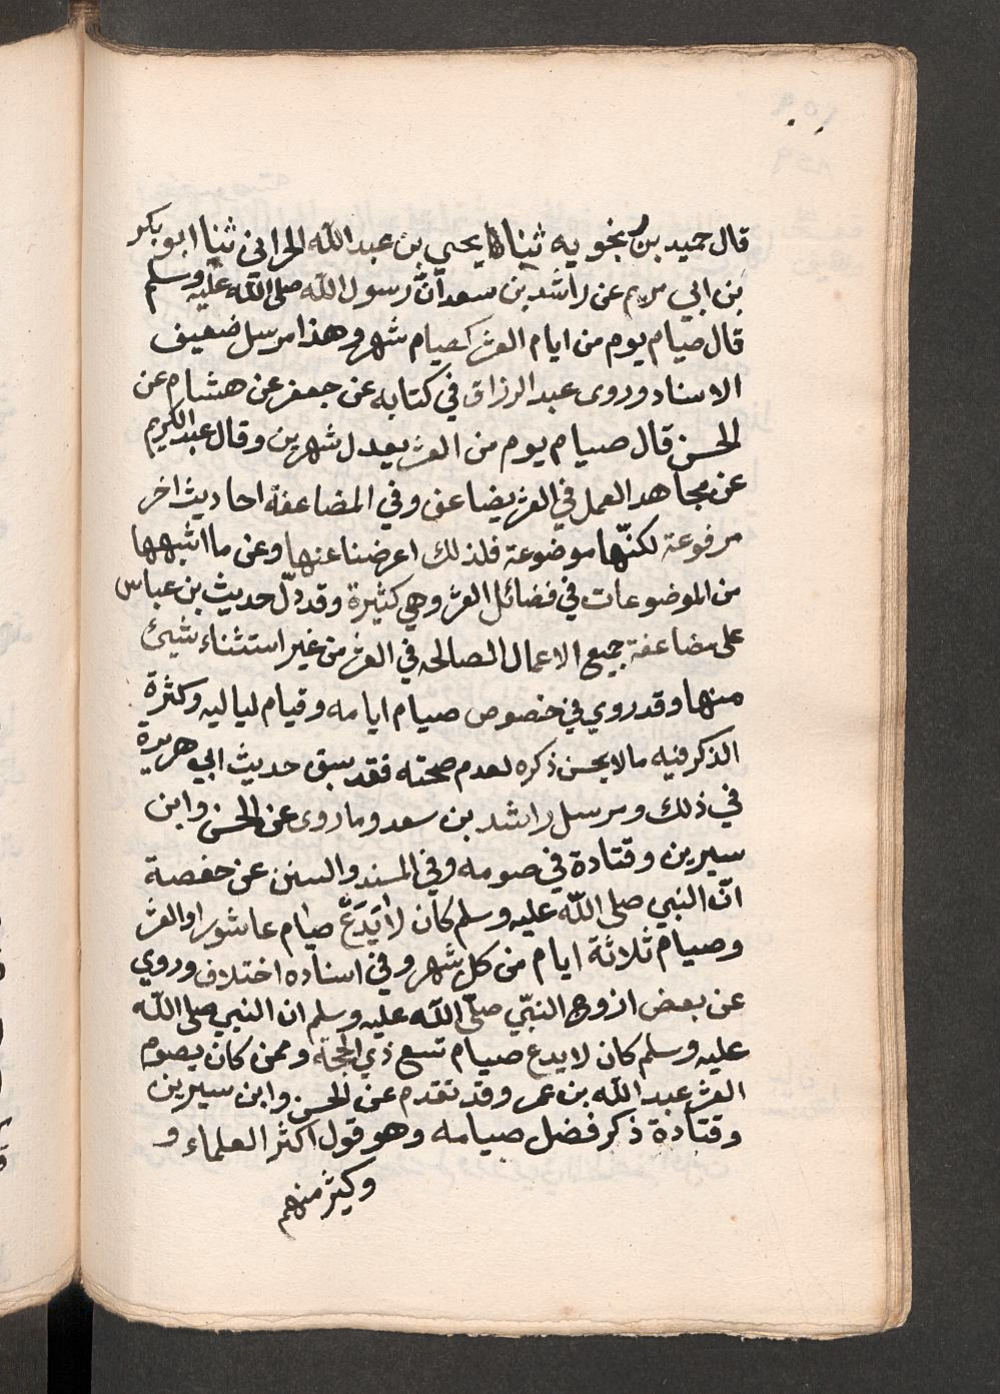 قال حميد بن زنجويه ثنا يحيى بن عبد الله الحراني ثنا ابو بكر
بن ابي مريم عن راشد بن سعد انّ رسول الله صلى الله عليه وسلم
قال صيام يوم من ايام العشر كصيام شهر وهذا مرسل ضعيف
الاسناد وروى عبد الرزاق في كتابه عن جعفر عن هشام عن
الحسن قال صيام يوم من العشر يعدل شهرين وقال عبد الكريم
عن مجاهد العمل في العشر يضاعف وفي المضاعفة احاديث اخر
مرفوعة لكنّها موضوعة فلذلك اعرضنا عنها وعن ما اشبهها
من الموضوعات في فضائل العشر وهي كثيرة وقد دلّ حديث بن عباس
على مضاعفة جميع الاعمال الصالحه في العشر من غير استثناء شيئ
منها وقد روي في خصوص صيام ايامه وقيام لياليه وكثرة
الذكر فيه ما لا يحسن ذكره لعدم صحته فقد سبق حديث ابي هريرة
في ذلك ومرسل راشد بن سعد وما روى عن الحسن وابن
سيرين وقتادة في صومه وفي المسند والسنن عن حفصة
انّ النبي صلى الله عليه وسلم كان لا يَدَعُ صيام عاشورا والعشر
وصيام ثلاثة ايام من كل شهر وفي اسناده اختلاف وروي
عن بعض ازوج النبّي صلّى الله عليه وسلم ان النبي صلى الله
عليه وسلم كان لا يدع صيام تسع ذي الحجة وممن كان يصوم
العشر عبد الله بن عمر وقد تقدم عن الحسن وابن سيرين
وقتادة ذكر فضل صيامه وهو قول اكثر العلماء و
وكثير منهم